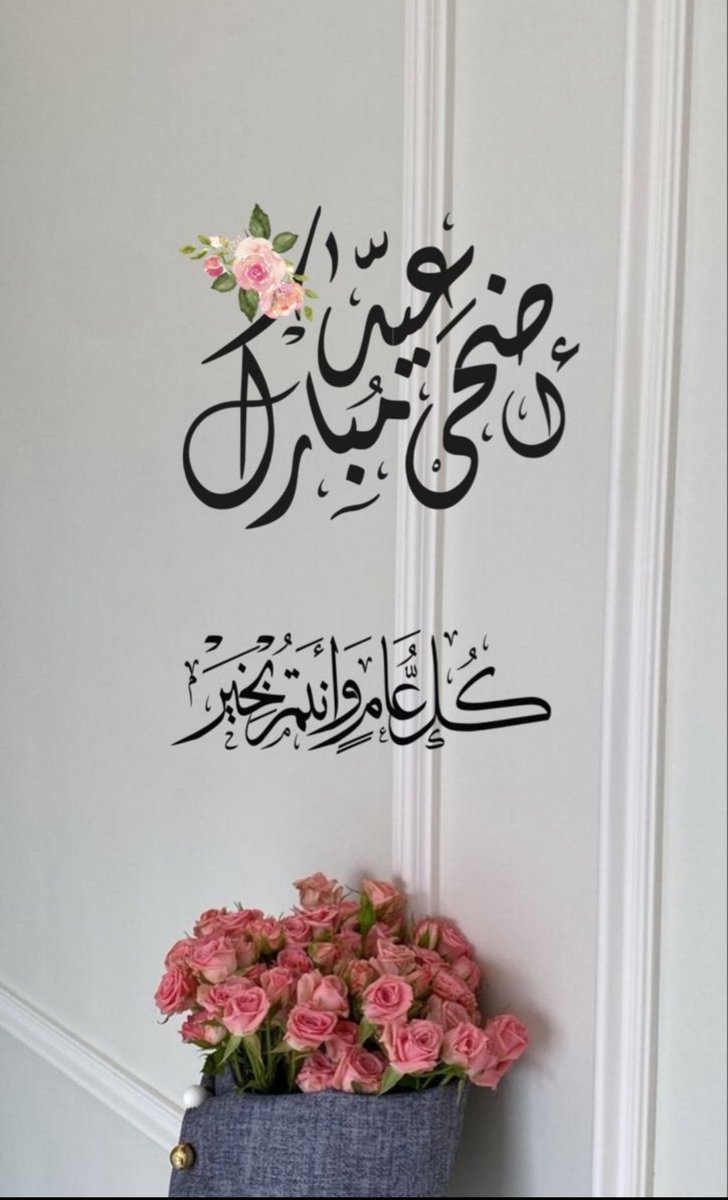 عِيدُ أضحى مُبارك
كُلُ عَّامٍ وَأنتَمُ بِخَيَرْ